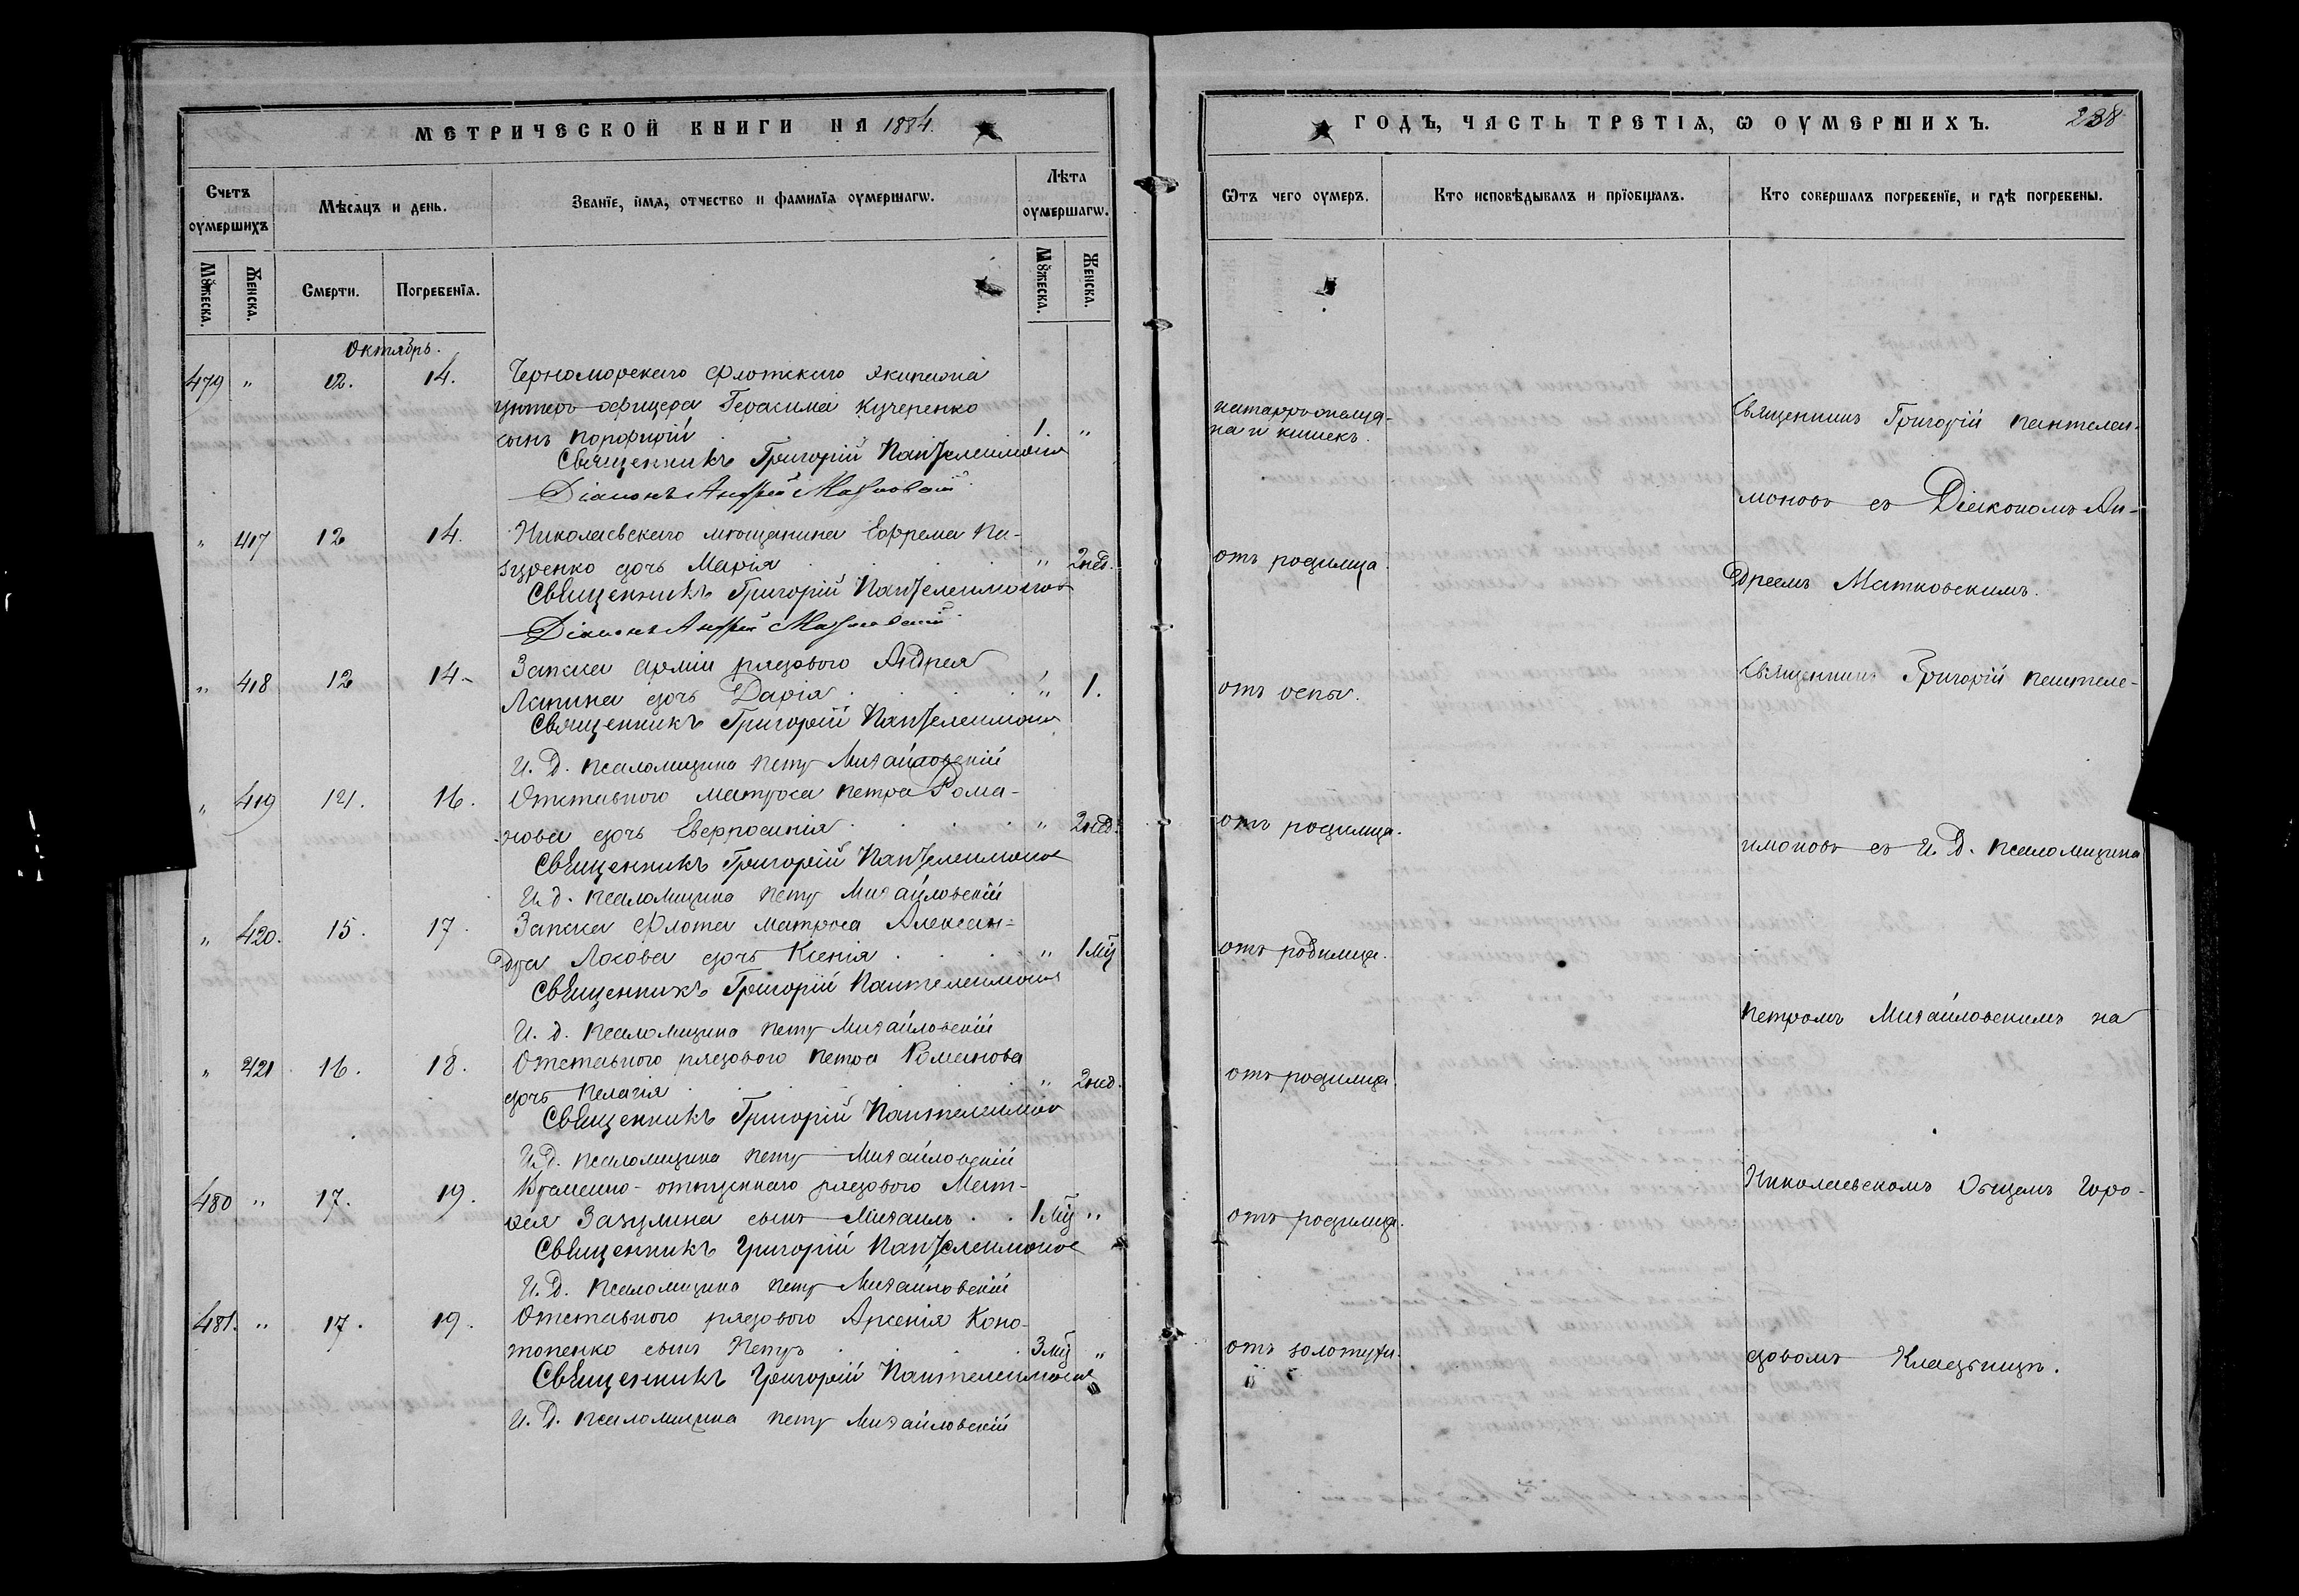 МЕТРИЧЕСКОЙ КНИГИ НА 1884.
Счетъ оумершихъ
Мѣсяцъ и день.
Званіе, имя, отчество и фамилія оумершагѡ.
Лѣта оумершагѡ.
Мꙋжеска.
Женска.
Смерти.
Погребенія.
Мꙋжеска.
Женска.
Октябрь.
479 " 12. 14. Черноморскаго флотскаго экипажа
унтеръ-офицера Герасима Кучеренко
сынъ Порфирій 1. "
Священникъ Григорій Пантелеимоновъ
Діаконъ Андрей Матковскій
" 417 12 14. Николаевскаго мѣщанина Ефрема
дочь Марія " 2 нед.
Священникъ Григорій Пантелеимоновъ
Діаконъ Андрей Матковскій
" 418 12 14. Запаса арміи рядового Андрея
Лапина дочь Дарія " 1.
Священникъ Григорій Пантелеимоновъ
И. Д. псаломщика Петръ Михайловскій
" 419 14. 16. Отставного матроса Петра Рома-
нова дочь Евфросинія " 2 нед.
Священникъ Григорій Пантелеимоновъ
И. д. псаломщика Петръ Михайловскій
" 420. 15. 17. Запаса флота матроса Алексан-
дра Лохова дочь Ксенія " 1 мц
Священникъ Григорій Пантелеимоновъ
И. д. псаломщика Петръ Михайловскій
" 421 16. 18. Отставного рядового Петра Романова
дочь Пелагія " 2 нед.
Священникъ Григорій Пантелеимоновъ
И. Д. псаломщика Петръ Михайловскій
480 " 17. 19. Временно-отпущеннаго рядового Мат-
вея Зазулина сынъ Михаилъ 1 мц "
Священникъ Григорій Пантелеимоновъ
И. Д. псаломщика Петръ Михайловскій
481. " 17. 19. Отставного рядового Арсенія Коно-
топенко сынъ Петръ 3 мц "
Священникъ Григорій Пантелеимоновъ
И. Д. псаломщика Петръ Михайловскій
ГОДЪ, ЧАСТЬ ТРЕТІЯ, Ѡ ОУМЕРШИХЪ. 238
Ѿтъ чего оумеръ.
Кто исповѣдывалъ и пріобщалъ.
Кто совершалъ погребеніе, и гдѣ погребены.
катарръ желуд-
ка и кишекъ.
отъ родимца
отъ оспы.
отъ родимца.
отъ родимца.
отъ родимца.
отъ родимца.
отъ золотухи.
Священникъ Григорій Пантелеи-
моновъ съ Діакономъ Ан-
дреемъ Матковскимъ.
Священникъ Григорій Пантеле-
имоновъ съ И. Д. псаломщика
Петромъ Михайловскимъ на
Николаевскомъ Общемъ Горо-
довомъ Кладбищѣ.